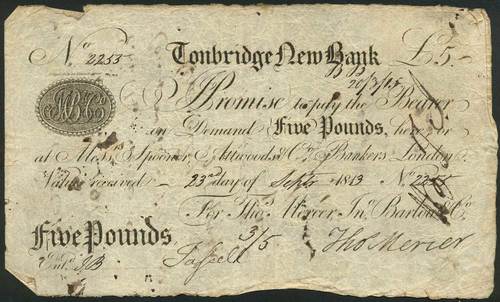 No. 2253 Tonbridge New Bank £5.-
20/7/15
I Promise to pay the Bearer
on Demand Five Pounds, here, or
at Messrs Spooner, Attwoods & Co. Bankers London
Value received 23rd day of Septr 1813 No. 2253
For Thos. Mercer Jno. Barton & Co.
Five Pounds 3/5 Thos Mercer
Entd.